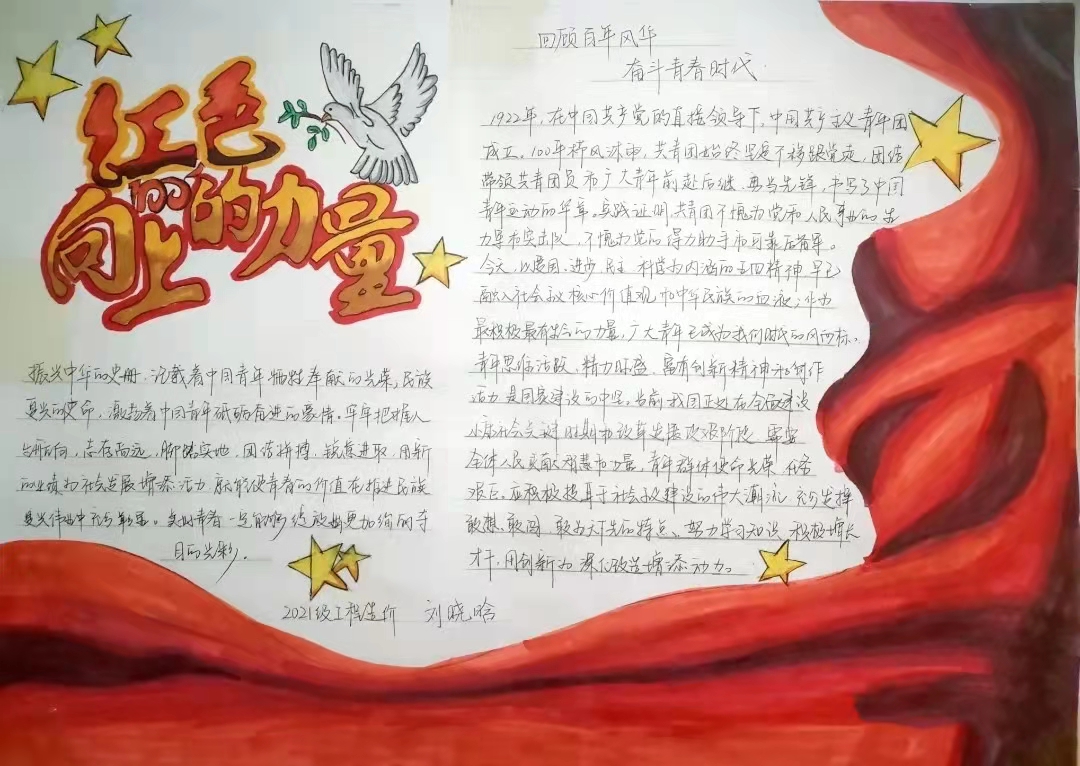 红色
100
向上的力量
振兴中华的史册，记载着中国青年牺牲奉献的光荣，民族
复兴的使命，激励着中国青年砥砺奋进的豪情。牢牢把握人
志存高远，脚踏实地，团结拼搏，锐意进取，用新
的业绩为社会发展增添活力，就能使青春的价值在推进民族
复兴伟业中充分彰显。美好青春一定能够绽放出更加绚丽夺
目的光彩。
2021级工程造价 刘晓晗
回顾百年风华
奋斗青春时代
1922年，在中国共产党的直接领导下，中国共产主义青年团
成立。100年栉风沐雨，共青团始终坚定不移跟党走，团结
带领共青团员和广大青年前赴后继、勇当先锋，书写了中国
青年运动的华章。实践证明，共青团不愧为党和人民事业的生
力军和突击队，不愧为党的得力助手和可靠后备军。
今天，以爱国、进步、民主、科学为内涵的五四精神，早已
融入社会主义核心价值观和中华民族的血液；作为
最积极最有生气的力量，广大青年已成为我们时代的风向标。
青年思维活跃、精力旺盛，富有创新精神和创作
活力，是国家建设的中坚。当前我国正处在全面建设
小康社会关键时期和改革发展攻艰阶段，需要
全体人民贡献智慧和力量，青年群体使命光荣、任务
艰巨。应积极投身于社会主义建设的伟大潮流，充分发挥
敢想、敢闯、敢为天下先的特点。努力学习知识、积极增长
才干，用创新为深化改造增添动力。